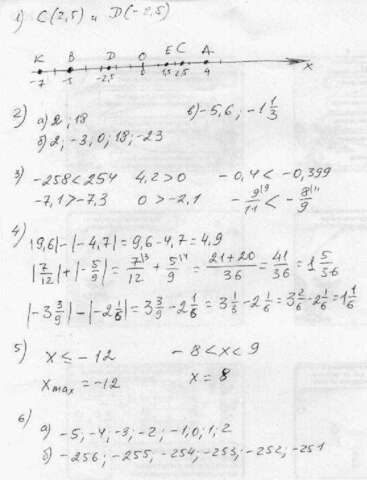 1) C(2,5) и D(-2,5)
K B D O E C A
-7 -5 -2,5 0 1,5 2,5 4 x
2) а) 2; 18 в) -5,6; -1 1/3
б) 2; -3, 0; 18; -23
3) -258 < 254 4,2 > 0 -0,4 < -0,399
-7,1 > -7,3 0 > -2,1 -9/11 |9 < -8/9 |11
4) |9,6| - |-4,7| = 9,6 - 4,7 = 4,9
|7/12| + |-5/9| = 7/12 |3 + 5/9 |4 = 21+20/36 = 41/36 = 1 5/36
|-3 3/9| - |-2 1/6| = 3 3/9 - 2 1/6 = 3 1/3 - 2 1/6 = 3 2/6 - 2 1/6 = 1 1/6
5) x ≤ -12 -8 < x < 9
x max = -12 x = 8
6) а) -5, -4; -3; -2; -1, 0; 1; 2
б) -256; -255; -254; -253; -252; -251